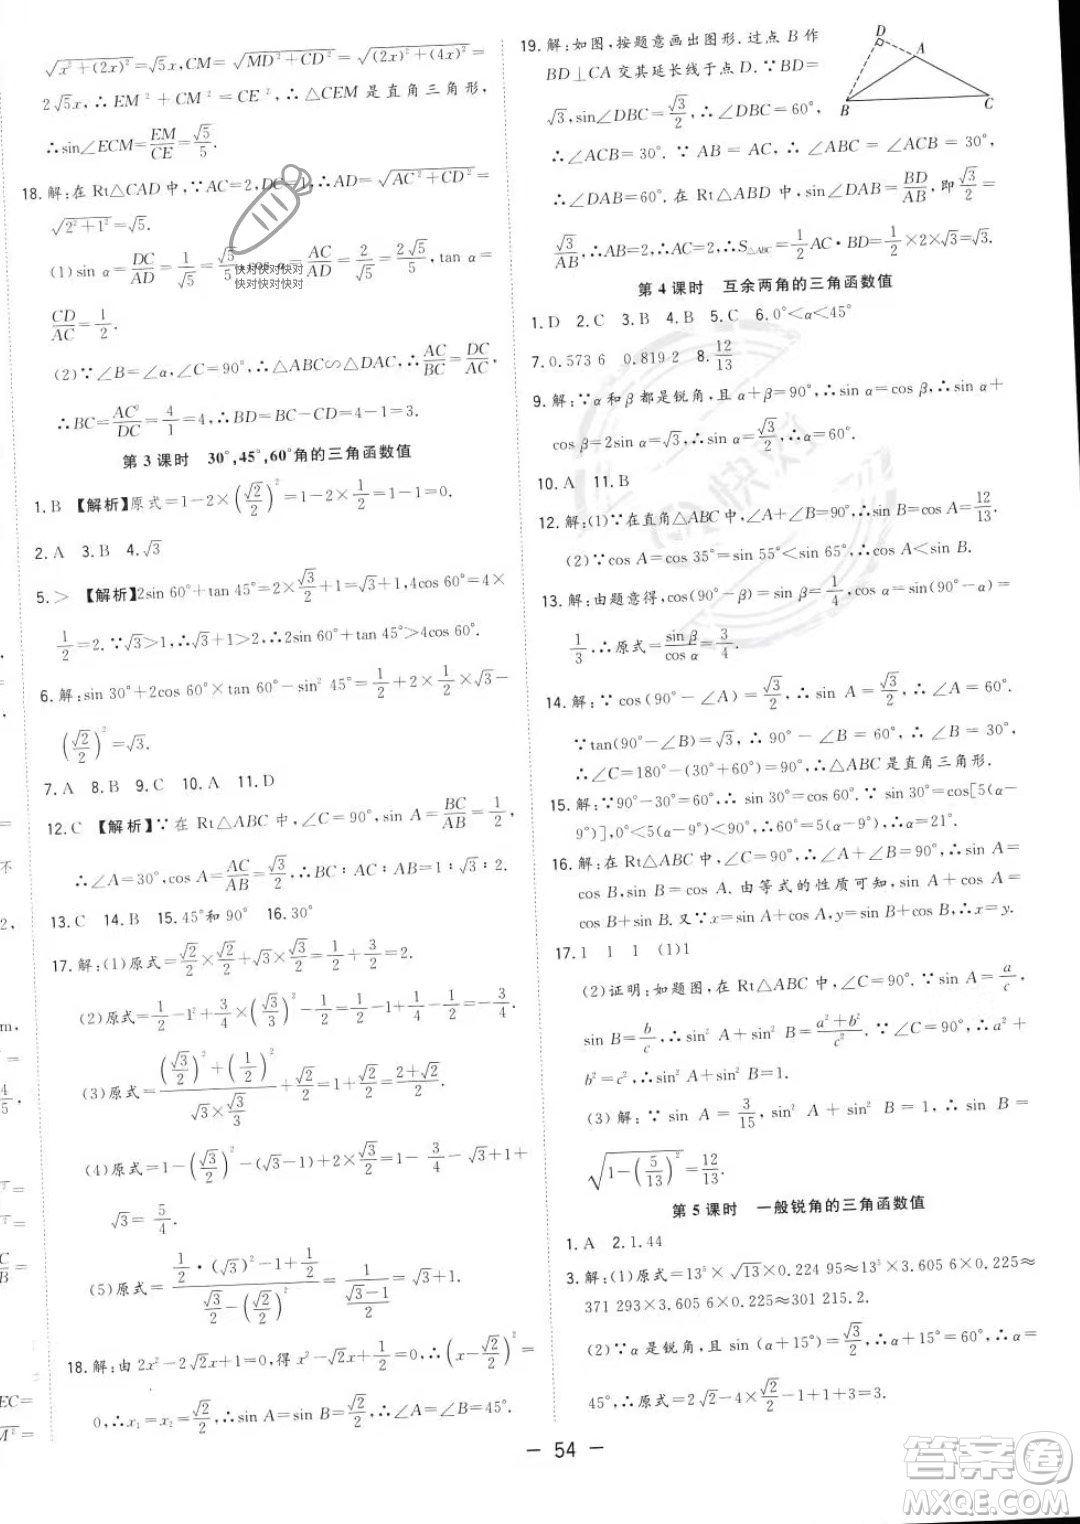 √(x²+(2x)²)=√5x,CM=√(MD²+CD²)=√((2x)²+(4x)²)=
2√5x,∴EM²+CM²=CE²,∴△CEM 是直角三角形,
∴sin∠ECM=EM/CE=√5/5.
18.解:在 Rt△CAD 中,∵AC=2,DC=1,∴AD=√(AC²+CD²)=
√(2²+1²)=√5.
(1)sin α=DC/AD=1/√5=√5/5,cos α=AC/AD=2/√5=2√5/5,tan α=
快对快对快对
快对快对快对
CD/AC=1/2.
(2)∵∠B=∠α,∠C=90°,∴△ABC∽△DAC,∴AC/BC=DC/AC,
∴BC=AC²/DC=4/1=4,∴BD=BC-CD=4-1=3.
第 3 课时 30°,45°,60°角的三角函数值
1.B 【解析】原式=1-2×(√2/2)²=1-2×1/2=1-1=0.
2.A 3.B 4.√3
5.> 【解析】2sin 60°+tan 45°=2×√3/2+1=√3+1,4cos 60°=4×
1/2=2.∵√3>1,∴√3+1>2,∴2sin 60°+tan 45°>4cos 60°.
6.解:sin 30°+2cos 60°×tan 60°-sin² 45°=1/2+2×1/2×√3-
(√2/2)²=√3.
7.A 8.B 9.C 10.A 11.D
12.C 【解析】∵在 Rt△ABC 中,∠C=90°,sin A=BC/AB=1/2,
∴∠A=30°,cos A=AC/AB=√3/2,∴BC∶AC∶AB=1∶√3∶2.
13.C 14.B 15.45°和 90° 16.30°
17.解:(1)原式=√2/2×√2/2+√3×√3/2=1/2+3/2=2.
(2)原式=1/2-1²+3/4×(√3/3)²=1/2-1+1/4=-3/4.
(3)原式=((√3/2)²+(1/2)²)/(√3×√3/3)+√2/2=1+√2/2=(2+√2)/2.
(4)原式=1-(√3/2)²-(√3-1)+2×√3/2=1-3/4-√3+1+
√3=5/4.
(5)原式=(1/2·(√3)²-1+1/2)/(√3/2-(√2/2)²)=1/((√3-1)/2)=√3+1.
18.解:由 2x²-2√2x+1=0,得 x²-√2x+1/2=0,∴(x-√2/2)²=
0,∴x₁=x₂=√2/2,∴sin A=sin B=√2/2,∴∠A=∠B=45°.
19.解:如图,按题意画出图形.过点 B 作
BD⊥CA 交其延长线于点 D.∵BD=
√3,sin∠DBC=√3/2,∴∠DBC=60°,
∴∠ACB=30°.∵AB=AC,∴∠ABC=∠ACB=30°,
∴∠DAB=60°.在 Rt△ABD 中,sin∠DAB=BD/AB,即√3/2=
√3/AB,∴AB=2,∴AC=2,∴S△ABC=1/2AC·BD=1/2×2×√3=√3.
D
A
B
C
第 4 课时 互余两角的三角函数值
1.D 2.C 3.B 4.B 5.C 6.0°<α<45°
7.0.573 6 0.819 2 8.12/13
9.解:∵α 和 β 都是锐角,且 α+β=90°,∴sin α=cos β,∴sin α+
cos β=2sin α=√3,∴sin α=√3/2,∴α=60°.
10.A 11.B
12.解:(1)∵在直角△ABC 中,∠A+∠B=90°,∴sin B=cos A=12/13.
(2)∵cos A=cos 35°=sin 55°<sin 65°,∴cos A<sin B.
13.解:由题意得,cos(90°-β)=sin β=1/4,cos α=sin(90°-α)=
1/3,∴原式=sin β/cos α=3/4.
14.解:∵cos(90°-∠A)=√3/2,∴sin A=√3/2,∴∠A=60°.
∵tan(90°-∠B)=√3,∴90°-∠B=60°,∴∠B=30°,
∴∠C=180°-(30°+60°)=90°,∴△ABC 是直角三角形.
15.解:∵90°-30°=60°,∴sin 30°=cos 60°.∵sin 30°=cos[5(α-
9°)],0°<5(α-9°)<90°,∴60°=5(α-9°),∴α=21°.
16.解:在 Rt△ABC 中,∵∠C=90°,∴∠A+∠B=90°,∴sin A=
cos B,sin B=cos A.由等式的性质可知,sin A+cos A=
cos B+sin B.又∵x=sin A+cos A,y=sin B+cos B,∴x=y.
17.1 1 1 (1)1
(2)证明:如题图,在 Rt△ABC 中,∠C=90°.∵sin A=a/c,
sin B=b/c,∴sin² A+sin² B=(a²+b²)/c².∵∠C=90°,∴a²+
b²=c²,∴sin² A+sin² B=1.
(3)解:∵sin A=3/15,sin² A+sin² B=1,∴sin B=
√(1-(5/13)²)=12/13.
第 5 课时 一般锐角的三角函数值
1.A 2.1.44
3.解:(1)原式=13⁵×√13×0.224 95≈13⁵×3.605 6×0.225≈
371 293×3.605 6×0.225≈301 215.2.
(2)∵α是锐角,且 sin(α+15°)=√3/2,∴α+15°=60°,∴α=
45°,∴原式=2√2-4×√2/2-1+1+3=3.
- 54 -
答案圈
MXQE.COM